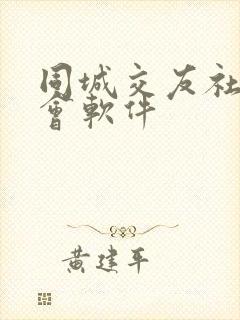 同城交友社
會軟件
黄建平